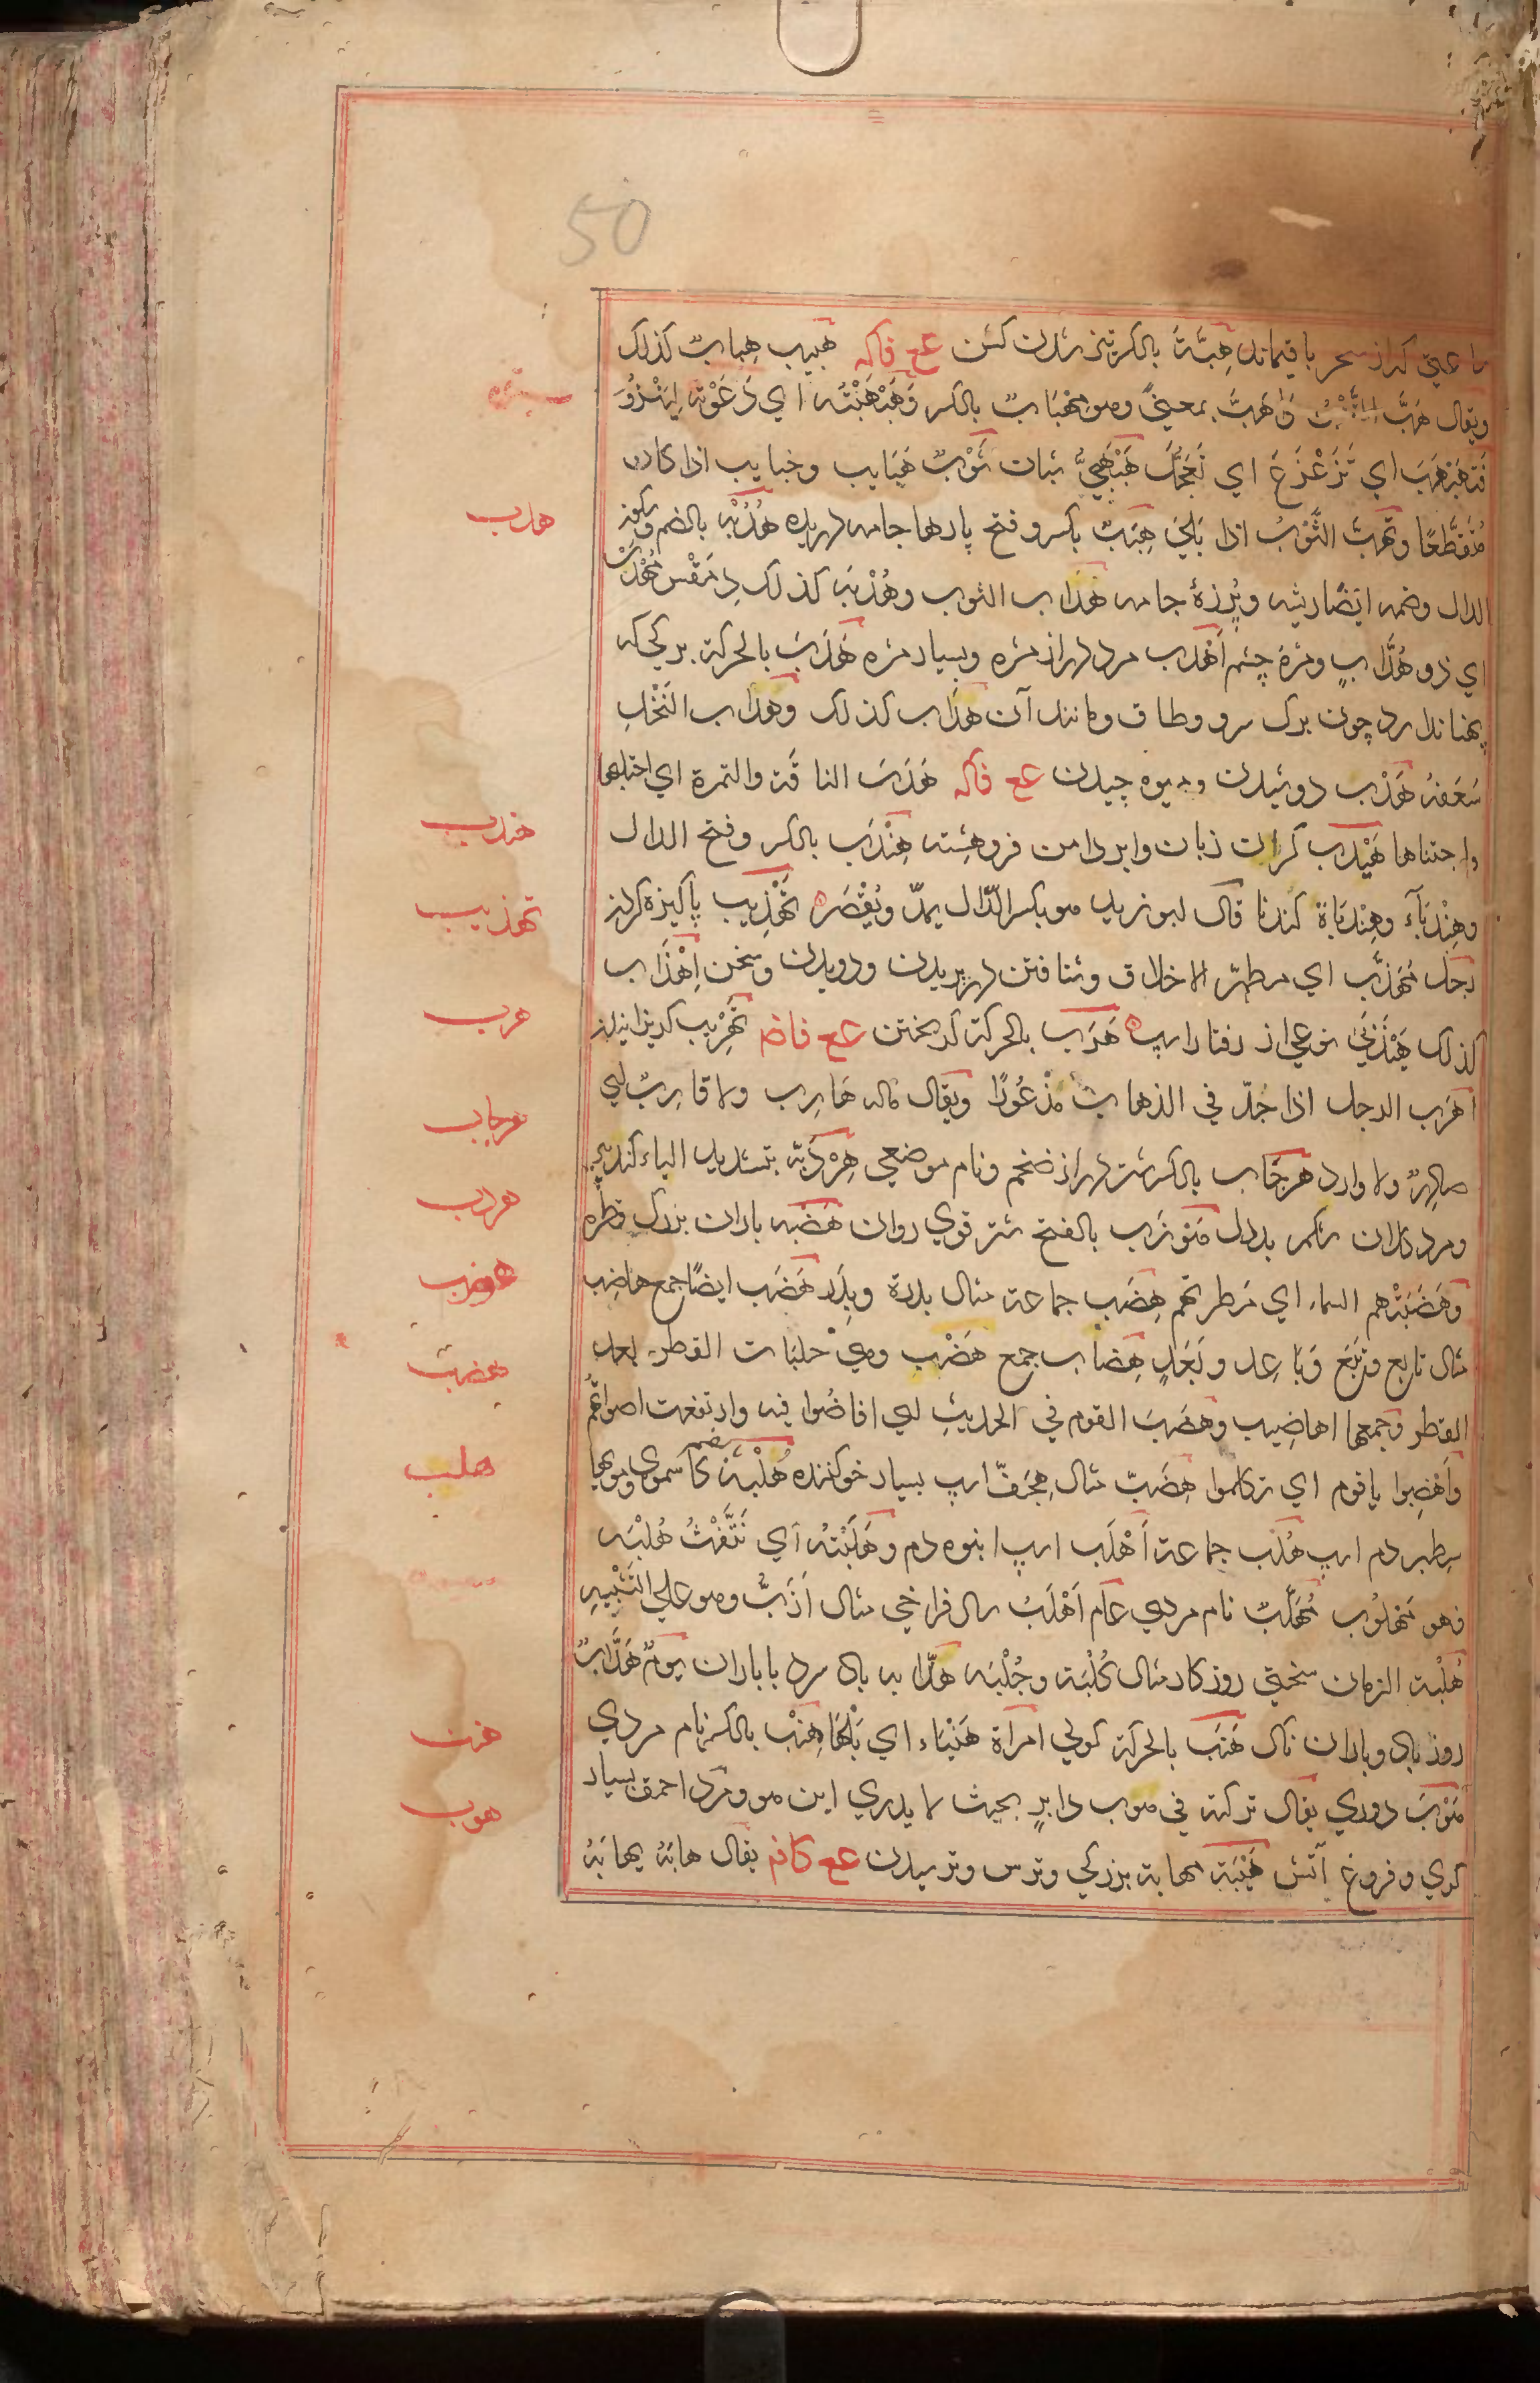 50
ساعتی کز از سحر باقیماند هِبَّةٌ بالکسر تیز شدن کشن عع فاکه هبیب هِباب کذلک
ویقال هَبَّ التَّیْسُ واهَبَّ بمعنیً وهو مِهْبَابٌ بالکسر وَهَبْهَبْتُه ای دَعَوْتُه لِیَنْزُوَ
فَتَهَبْهَبَ ای تَزَعْزَعَ ای تَعَجَّلَ هَبْهَبِیُّ شبان ثَوْبٌ هَبَایب وخبایب اذا کان
مُتَقَطِّعًا وتَهَبَّبَ الثَّوْبُ اذا بَلِیَ هِبَبٌ بکسر وفتح پارها جامه دریده هُدْبُه بالضم وسکون
الدال وضمه ایضًا ریشه وپُرزۀ جامه هُدَّاب الثوب وهُدْبَه کذلک دِمَقْس مُهْدَبٌ
ای ذو هُدَّابٍ ومژۀ چشم اَهْدَب مرد دراز مژه وبسیار مژه هَدَبَ بالحرکة برکی که
پهنا ندارد چون برک سرو وطاق ومانند آن هُدَّاب کذلک وهُدَّاب النَّخْلِ
سَعَفُهُ هَدْب دوشیدن ومیوه چیدن عع فاکه هَدَبَ الناقة والثمرة ای احتلبها
واجتناها هَیْدَب کران زبان وابر دامن فروهشته هِنْدَب بالکسر وفتح الدال
وهِنْدَبَآء وهِنْدَبَاة کندنا قال ابو زید هو بکسر الدّال یمدّ ویُقْصَر تَهْذِیب پاکیزه کردن
رجل مُهَذَّب ای مطهّر الاخلاق وشتافتن در پریدن ودویدن وسخن اِهْذَاب
کذلک هَیْذَبَی نوعی از رفتار اسپ هَرَب بالحرکة کریختن عع فاضم تَهْرِیب کریزانیدن
اَهْرَب الرجل اذا جَدّ فی الذهاب مَذْعُورًا ویقال ماله هَارِب ولا قارِب ای
صادِرٌ ولا وارد هِرْجَاب بالکسر شتر دراز ضخم ونام موضعی هِرْدَبّة بتشدید الباء کنده پیر
ومرد کلان شکم بددل هَوْزَب بالفتح شتر قوی روان هَضْبه باران بزرک قطره
وهَضَبَتْهم السماء ای مَطَرتهم هِضَب جماعة مثال بدرة وبِدَر هَضَب ایضًا جمع هاضِب
مثال تابع وتَبَع وبَاعِد وبَعَدٍ هِضاب جمع هَضْب وهی حلبات القطر بعد
القطر وجمعها اهاضیب وهَضَبَ القوم فی الحدیث ای افاضُوا فیه وارتفعت اصواتُهم
واَهْضِبوا یا قوم ای تکلموا هِضَبّ مثال هِجَفّ اسپ بسیار خوی کننده هُلْبَة بضم کا سموی وموی‌ها
سطبر دم اسپ هُلْب جماعة اَهْلَب اسپ انبوه دم وهَلَبْتُه ای نَتَفْتُ هُلْبَه
فهو مَهْلُوب مُهَلَّب نام مردی عام اَهْلَبُ سال فراخی مثال اَزَبُّ وهو علی التشبیه
هُلْبَة الزمان سختی روزکار مثال کُلْبَة وجُلْبَه هلّابه باد سرد با باران یَومٌ هَلَّابٌ
روز باد وباران ناک هَنَب بالحرکة کولی امرأة هَنْبَاء ای بَلْهَا هِنْب بالکسر نام مردی
هَوْبَ دوری یقال ترکته فی هَوب دابرٍ بحیث لا یدری این هو ومرد احمق بسیار
کوی وفروغ آتش هَیْبَة مهابة بزرکی وترس وترسیدن عع کافم یقال هابَهُ یهابُهُ
هدب
هندب
تهذیب
هرب
هرجاب
هردب
هوزب
هضب
هلب
هنب
هوب